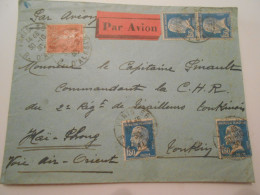 Par Avion
Par Avion
Monsieur le Capitaine Pinault
Commandant la C.H.R.
du 2e Régt de Tirailleurs Tonkinois
Haï-Phong
Tonkin
Voie air-Orient